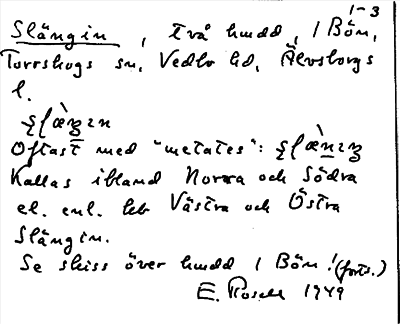 1-3
Slängin, två hmdd, i Bön,
Torrskogs sn, Vedbo hd, Älvsborgs
l.
Oftast med "metates":
Kallas ibland Norra och Södra
el. enl. leb Västra och Östra
Slängin.
Se skiss över hmdd i Bön! (forts.)
E. Rosell 1949